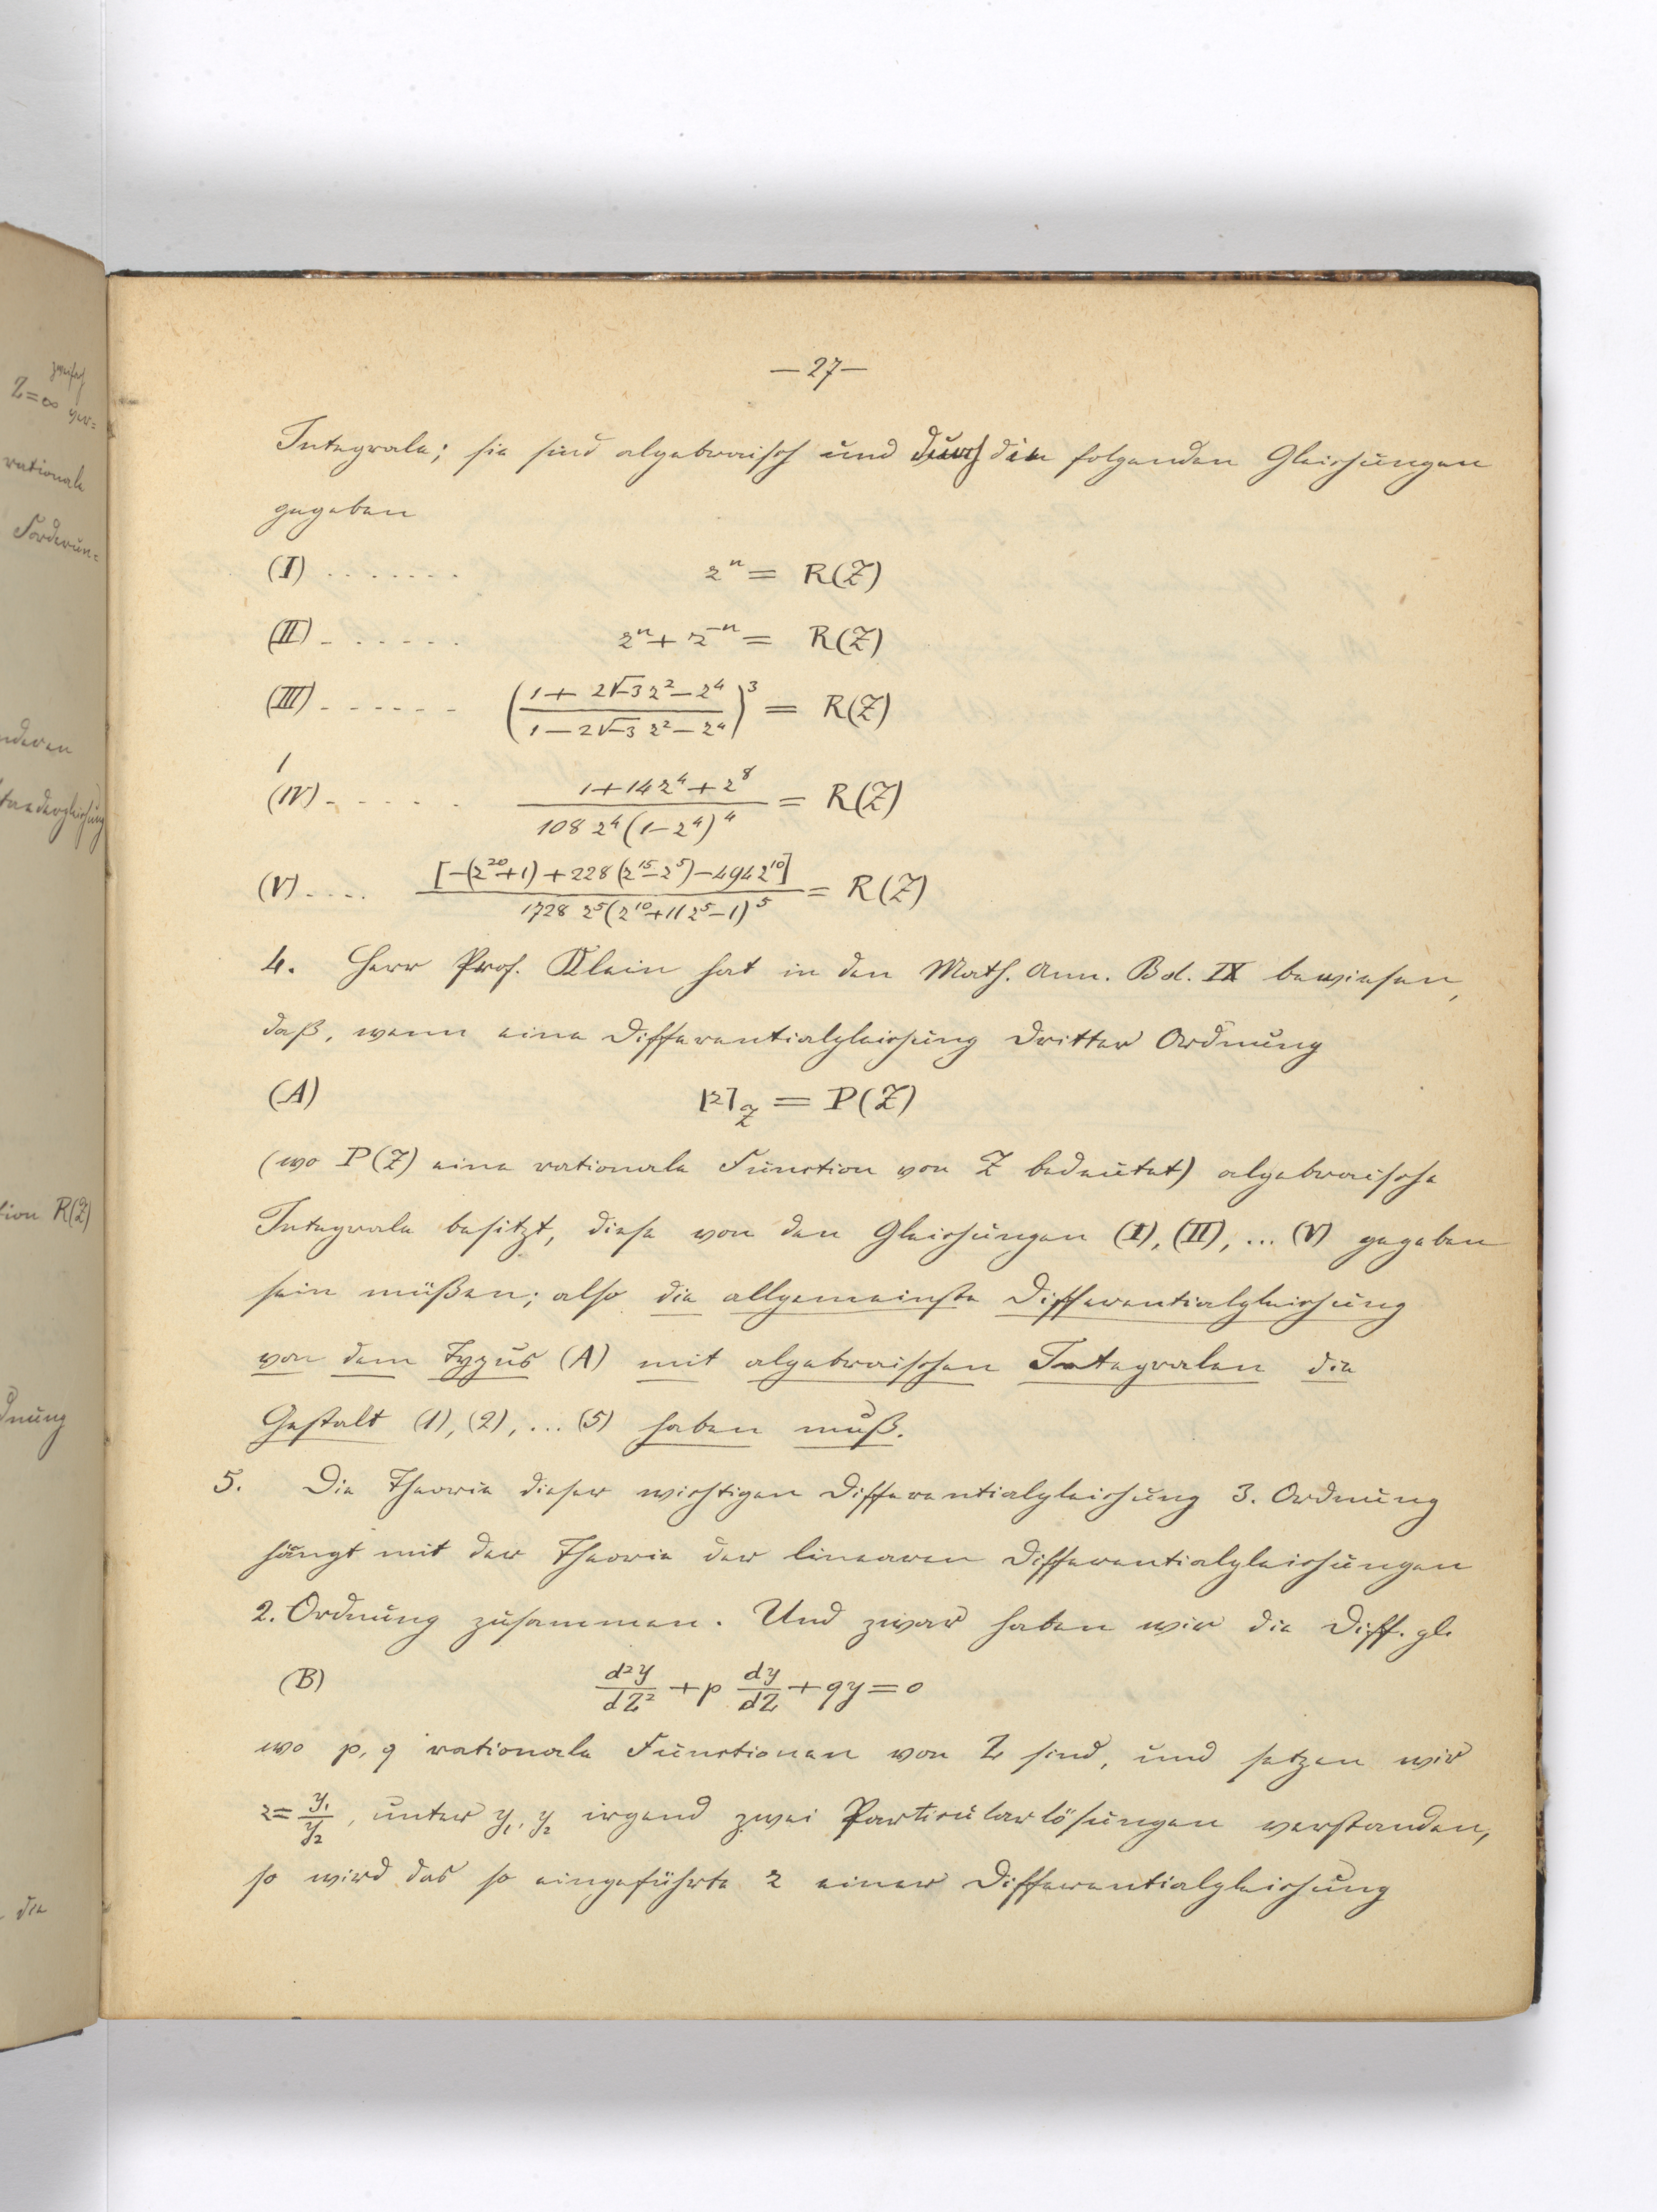 — 27 —
Integrale; sie sind algebraisch und durch die folgenden Gleichungen
gegeben
(I) . . . . . . . z^n = R(Z)
(II) . . . . . . z^n + z^{-n} = R(Z)
(III) . . . . . . ((1 + 2√-3 z^2 - z^4)/(1 - 2√-3 z^2 - z^4))^3 = R(Z)
(IV) . . . . . (1 + 14z^4 + z^8)/(108 z^4 (1 - z^4)^4) = R(Z)
(V) . . . . [-(z^{20}+1) + 228(z^{15} - z^5) - 494z^{10}]/(1728 z^5 (z^{10} + 11z^5 - 1)^5) = R(Z)
4. Herr Prof. Klein hat in den Math. Ann. Bd. IX bewiesen,
daß, wenn eine Differentialgleichung dritter Ordnung
(A) [z]_Z = P(Z)
(wo P(Z) eine rationale Function von Z bedeutet) algebraische
Integrale besitzt, diese von den Gleichungen (I), (II), ... (V) gegeben
sein müßen; also die allgemeinste Differentialgleichung
von dem Typus (A) mit algebraischen Integralen die
Gestalt (1), (2), ... (5) haben muß.
5. Die Theorie dieser wichtigen Differentialgleichung 3. Ordnung
hängt mit der Theorie der linearen Differentialgleichungen
2. Ordnung zusammen. Und zwar haben wir die Diff. gl.
(B) d^2y/dZ^2 + p dy/dZ + qy = 0
wo p, q rationale Functionen von Z sind, und setzen wir
z = y_1/y_2, unter y_1, y_2 irgend zwei Particularlösungen verstanden,
so wird das so eingeführte z einer Differentialgleichung
Z = ∞
rationale
Forderun=
nderen
tion R(Z)
dnung
die